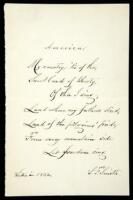 America
My country, 'tis of thee
Sweet land of liberty
Of thee I sing
Land where my fathers died,
Land of the pilgrims' pride,
From every mountain side
Let freedom ring.
Written in 1832.
S. F. Smith